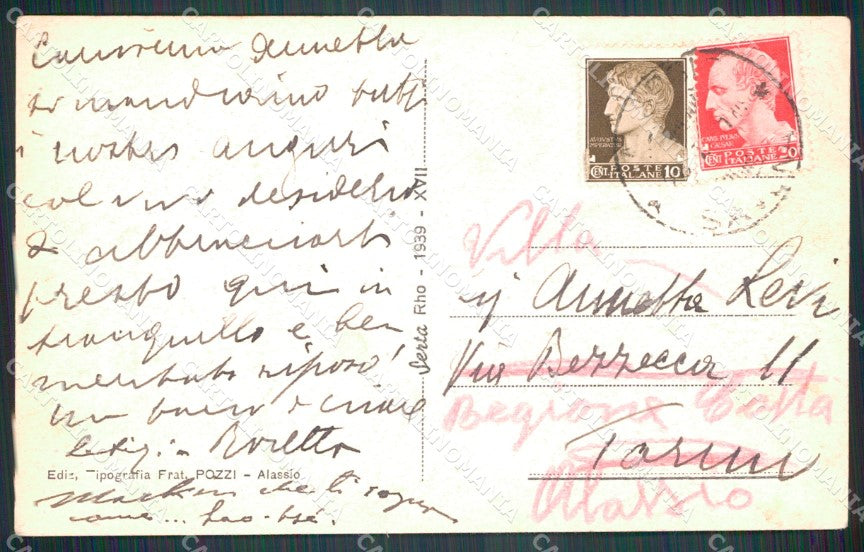 Carissima Annetta
ti mandiamo tutti
i nostri auguri
col vivo desiderio
di abbracciarti
presto qui in
tranquillo e ben
meritato riposo!
un bacio
Boretto
Ediz, Tipografia Frat. POZZI - Alassio
che ti
come...
Serta Rho - 1939 - XVII
AUGUSTUS
IMPERATOR
POSTE
CENT. ITALIANE 10
CAIUS IULIUS
CAESAR
POSTE
CENT. ITALIANE 20
Villa
Annetta Levi
Via Bezzecca 11
Regione Costa
Torino
Alassio
CARTOLINOMANIA